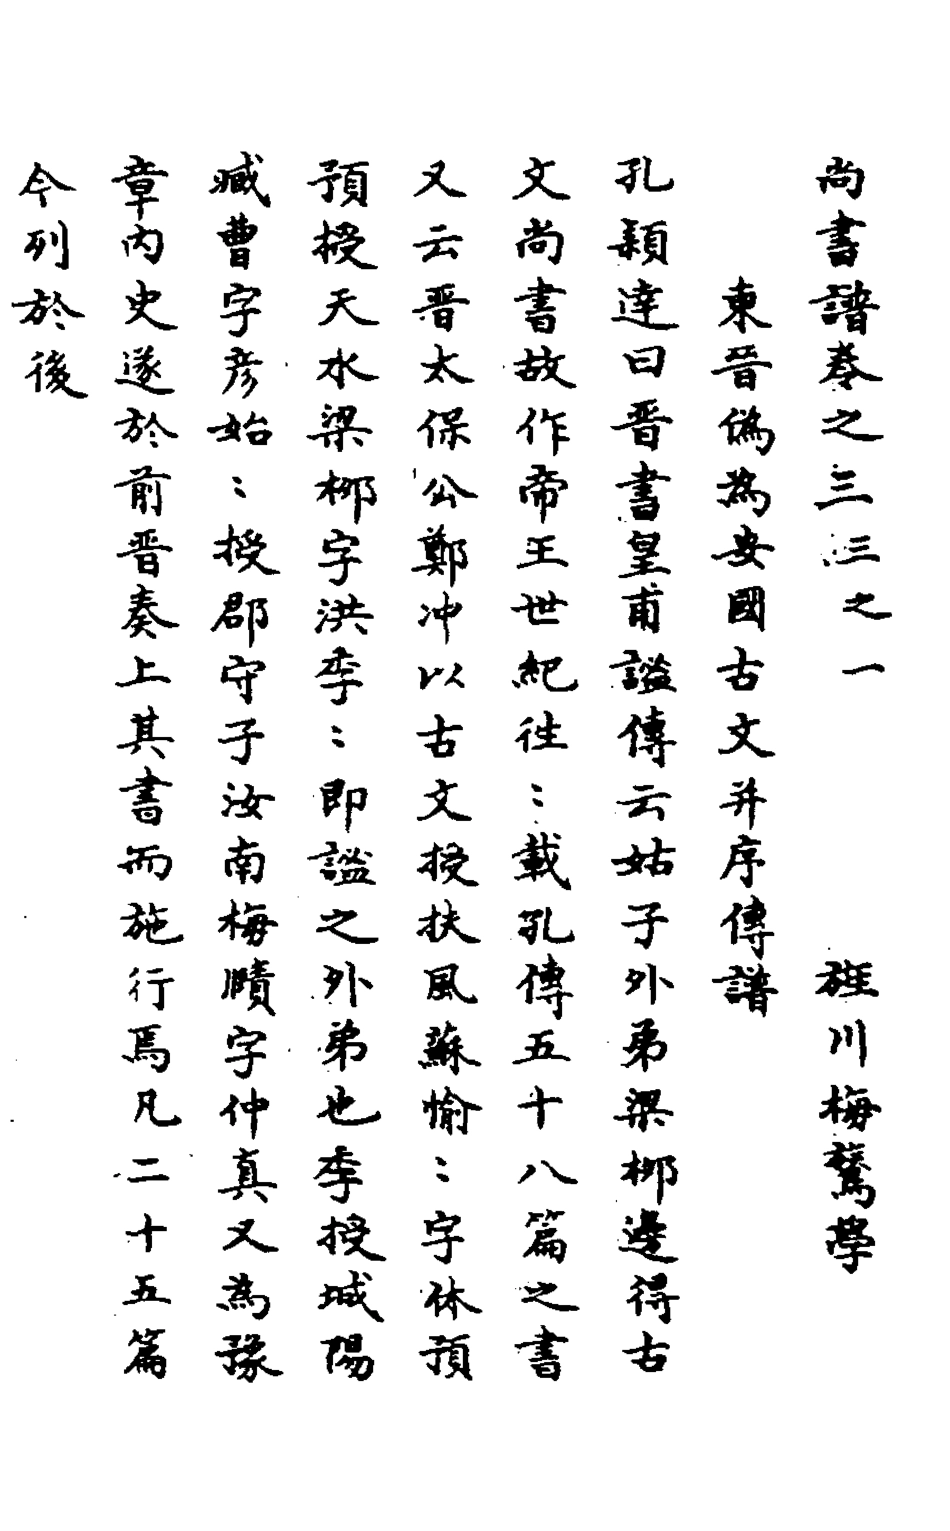 尚書譜卷之三三之一 旌川梅鷟學
東晉偽為安國古文并序傳譜
孔穎達曰晉書皇甫謐傳云姑子外弟梁柳邊得古
文尚書故作帝王世紀往：載孔傳五十八篇之書
又云晋太保公鄭冲以古文授扶風蘇愉：字休預
預授天水梁柳字洪季：即謐之外弟也季授城陽
臧曹字彦始：授郡守子汝南梅賾字仲真又為豫
章內史遂於前晋奏上其書而施行焉凡二十五篇
今列於後